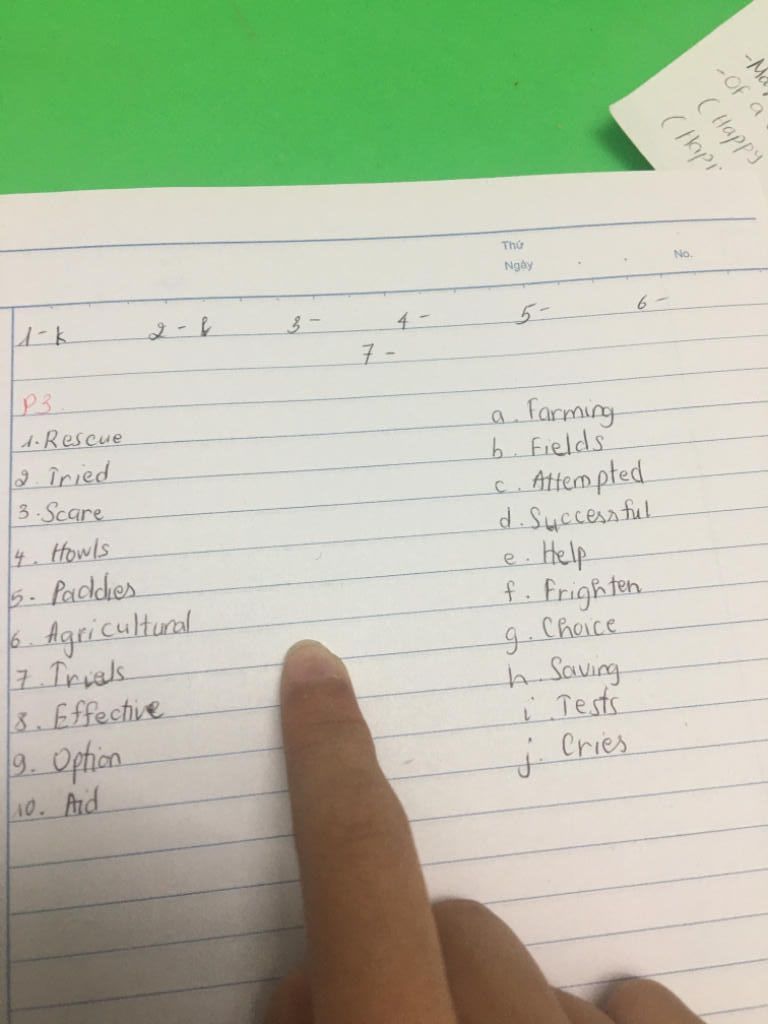 -Of a
(Happy
Thứ
Ngày . . No.
1-k 2- 3- 4- 5- 6-
7-
P3
1. Rescue
2. Tried
3. Scare
4. Howls
5. Paddies
6. Agricultural
7. Trials
8. Effective
9. Option
10. Aid
a. Farming
b. Fields
c. Attempted
d. Successful
e. Help
f. Frighten
g. Choice
h. Saving
i. Tests
j. Cries